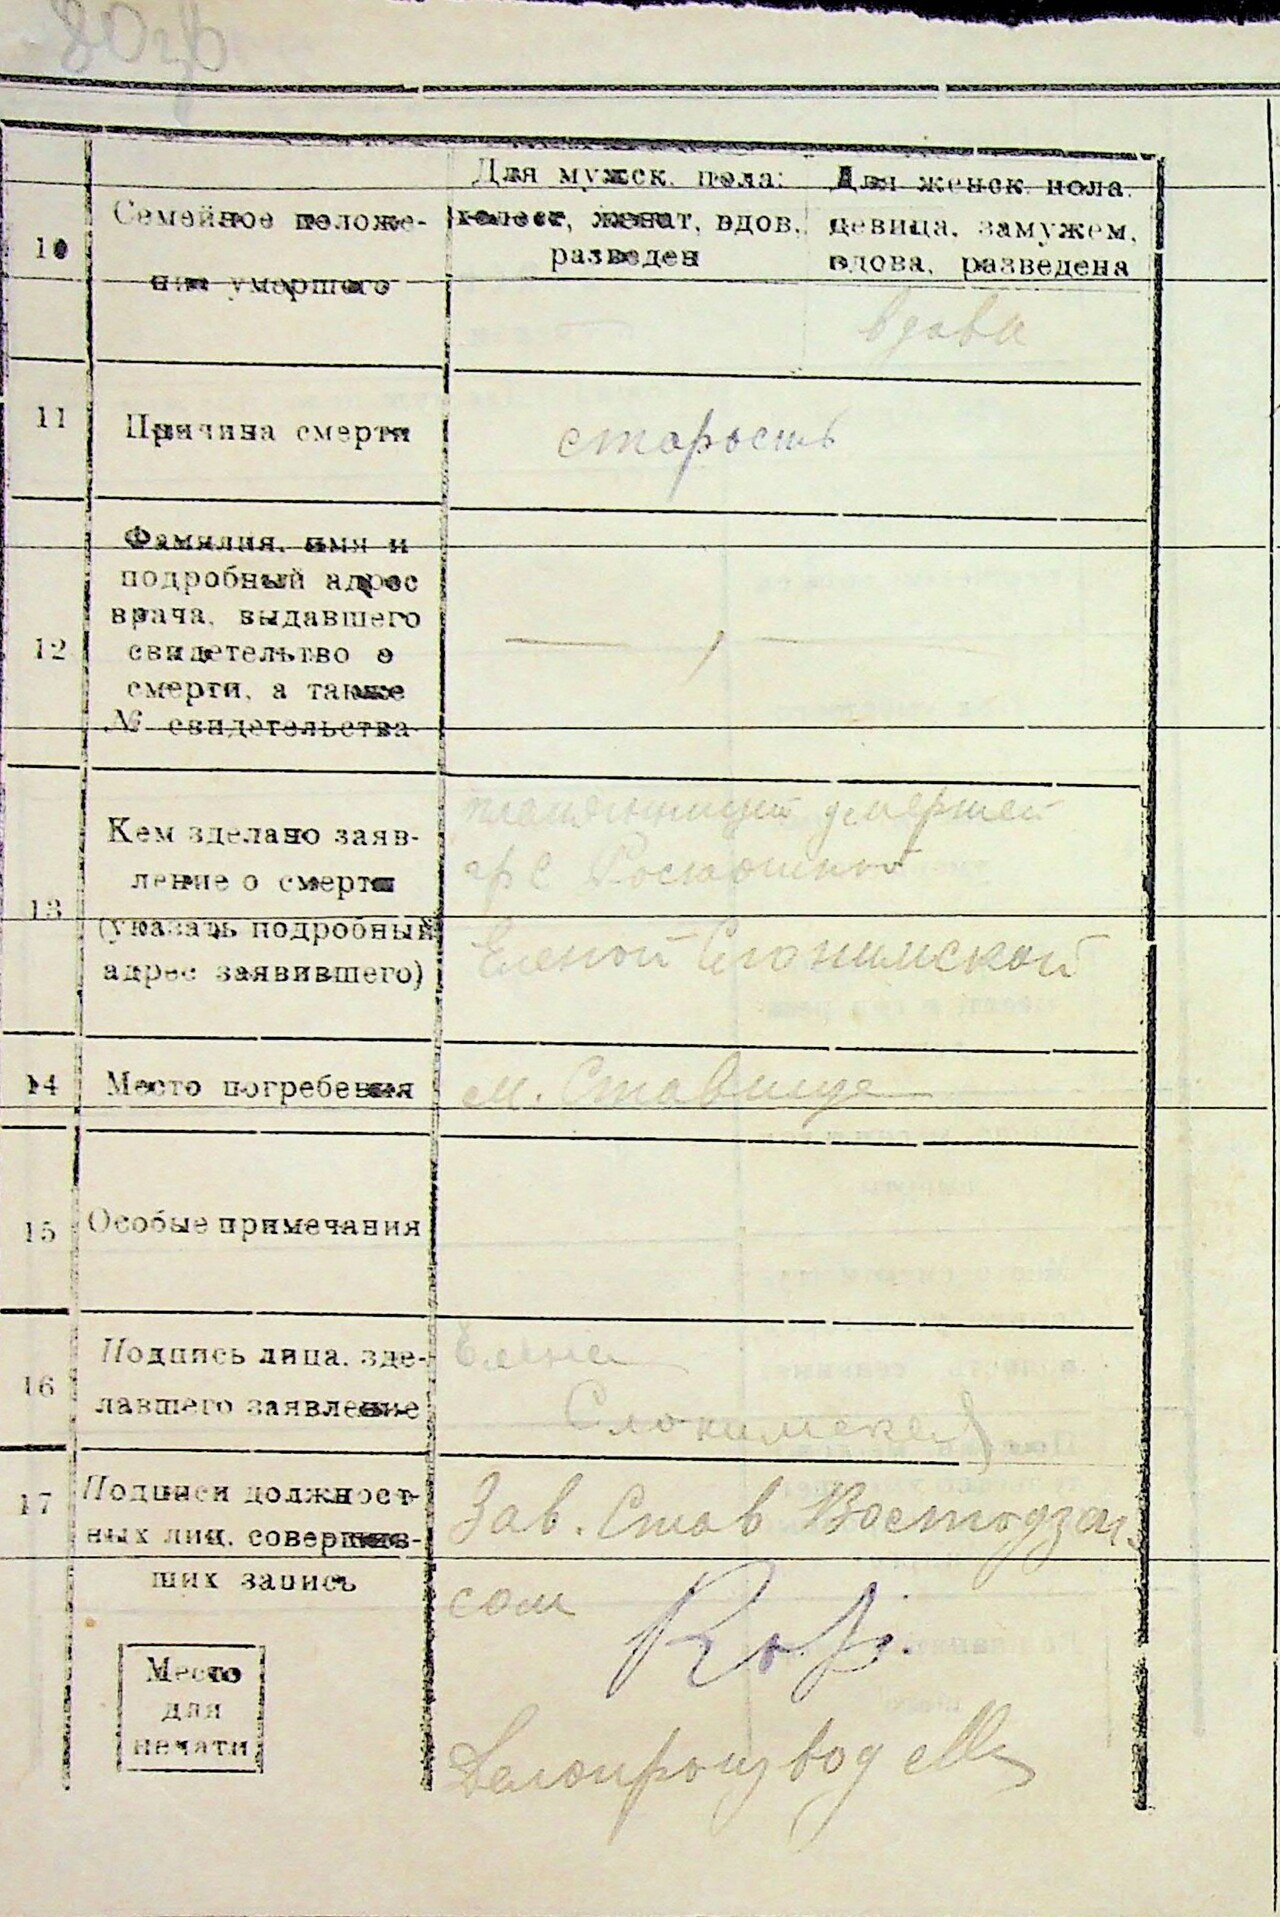 Для мужск. пола: Для женск. пола:
10 Семейное положе- холост, женат, вдов, девица, замужем,
ние умершего разведен вдова, разведена
вдова
11 Причина смерти старость
Фамилия, имя и
подробный адрес
врача, выдавшего
12 свидетельство о
смерти, а также
№ свидетельства
умершей
Кем зделано заяв- гр с Роскошной
ление о смерти
13 (указать подробный Еленой Слонимской
адрес заявившего)
14 Место погребения м. Ставище
15 Особые примечания
Подпись лица, зде- Елена
16 лавшего заявление Слонимская
17 Подписи должност- Зав. Став
ных лиц, совершив-
ших запись
Место
для
печати
Делопроизвод